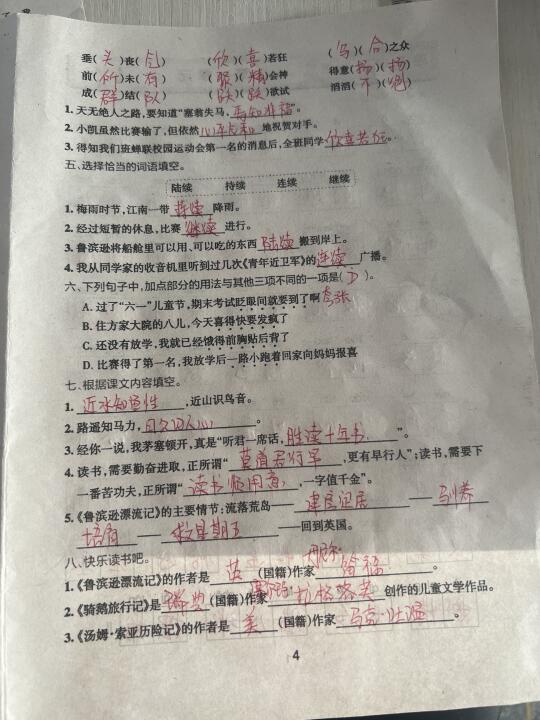 垂(头)丧(气) (欣)(喜)若狂 (乌)(合)之众
前(所)未(有) (聚)(精)会神 得意(扬)(扬)
成(群)结(队) (跃)(跃)欲试 滔滔(不)(绝)
1.天无绝人之路,要知道“塞翁失马,焉知非福”。
2.小凯虽然比赛输了,但依然心平气和地祝贺对手。
3.得知我们班蝉联校园运动会第一名的消息后,全班同学欣喜若狂。
五、选择恰当的词语填空。
陆续 持续 连续 继续
1.梅雨时节,江南一带持续降雨。
2.经过短暂的休息,比赛继续进行。
3.鲁滨逊将船舱里可以用、可以吃的东西陆续搬到岸上。
4.我从同学家的收音机里听到过几次《青年近卫军》的连续广播。
六、下列句子中,加点部分的用法与其他三项不同的一项是(D)。
A.过了“六一”儿童节,期末考试眨眼间就要到了啊 夸张
B.住方家大院的八儿,今天喜得快要发疯了
C.还没有放学,我就已经饿得前胸贴后背了
D.比赛得了第一名,我放学后一路小跑着回家向妈妈报喜
七、根据课文内容填空。
1.近水知鱼性,近山识鸟音。
2.路遥知马力,日久见人心。
3.经你一说,我茅塞顿开,真是“听君一席话,胜读十年书”。
4.读书,需要勤奋进取,正所谓“莫道君行早,更有早行人”;读书,需要下
一番苦功夫,正所谓“读书须用意,一字值千金”。
5.《鲁滨逊漂流记》的主要情节:流落荒岛——建房定居——驯养
培育——救星期五——回到英国。
八、快乐读书吧。
1.《鲁滨逊漂流记》的作者是英(国籍)作家丹尼尔·笛福。
2.《骑鹅旅行记》是瑞典(国籍)作家拉格洛芙创作的儿童文学作品。
3.《汤姆·索亚历险记》的作者是美(国籍)作家马克·吐温。
4